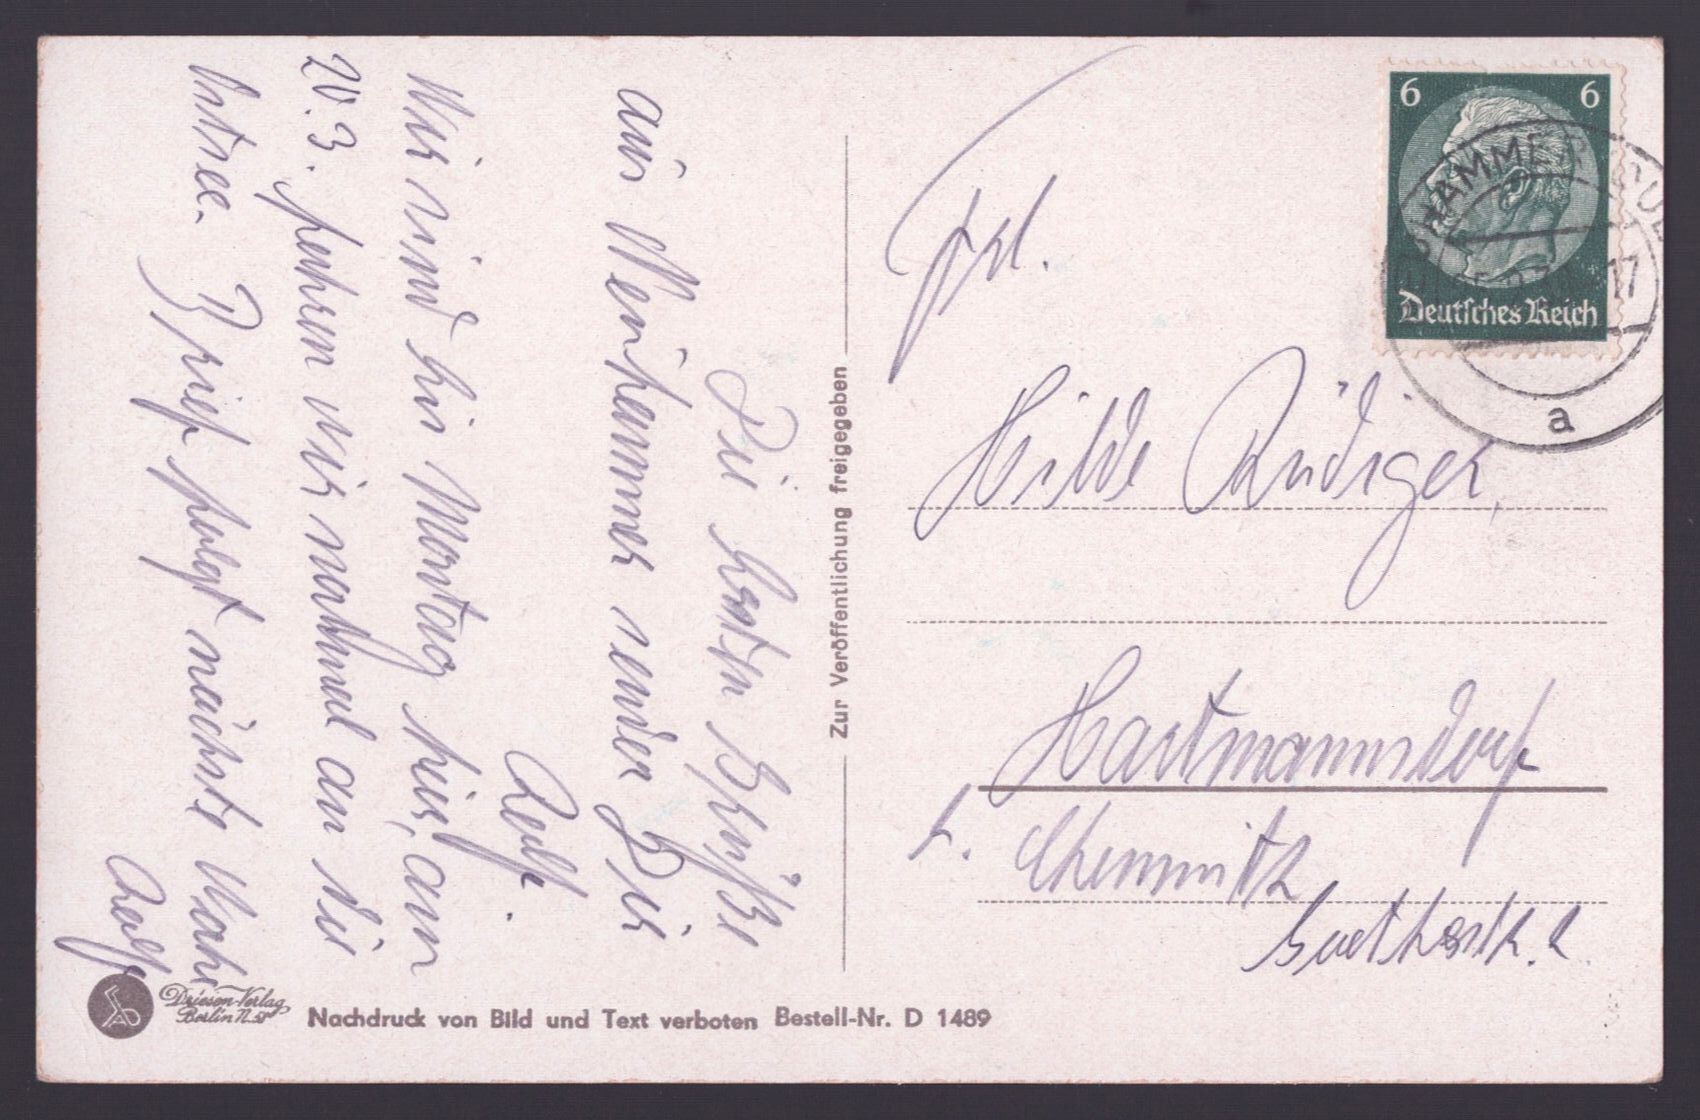 Die besten Grüße
aus Neuhammer sendet Dir
Rolf.
Wir sind bis Montag hier, am
20.3. fahren wir nochmal an die
Ostsee. Brief folgt nächste Woche
Rolf
Zur Veröffentlichung freigegeben
6 6
Deutsches Reich
17
a
Frl.
Hilde Rüdiger,
Hartmannsdorf
b. Chemnitz
Goethestr. 2.
Driesen-Verlag
Berlin N. 58
Nachdruck von Bild und Text verboten Bestell-Nr. D 1489